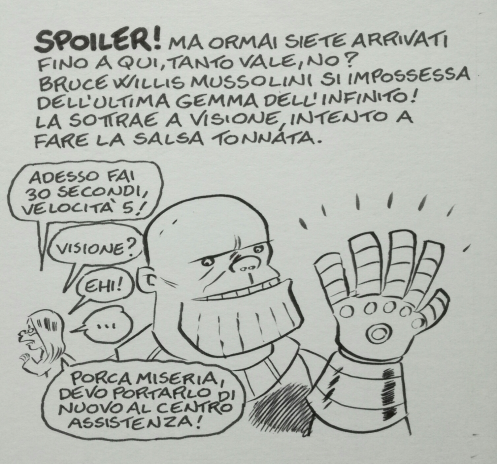 SPOILER! MA ORMAI SIETE ARRIVATI
FINO A QUI, TANTO VALE, NO?
BRUCE WILLIS MUSSOLINI SI IMPOSSESSA
DELL'ULTIMA GEMMA DELL'INFINITO!
LA SOTTRAE A VISIONE, INTENTO A
FARE LA SALSA TONNATA.
ADESSO FAI
30 SECONDI,
VELOCITÀ 5!
VISIONE?
EHI!
...
PORCA MISERIA,
DEVO PORTARLO DI
NUOVO AL CENTRO
ASSISTENZA!